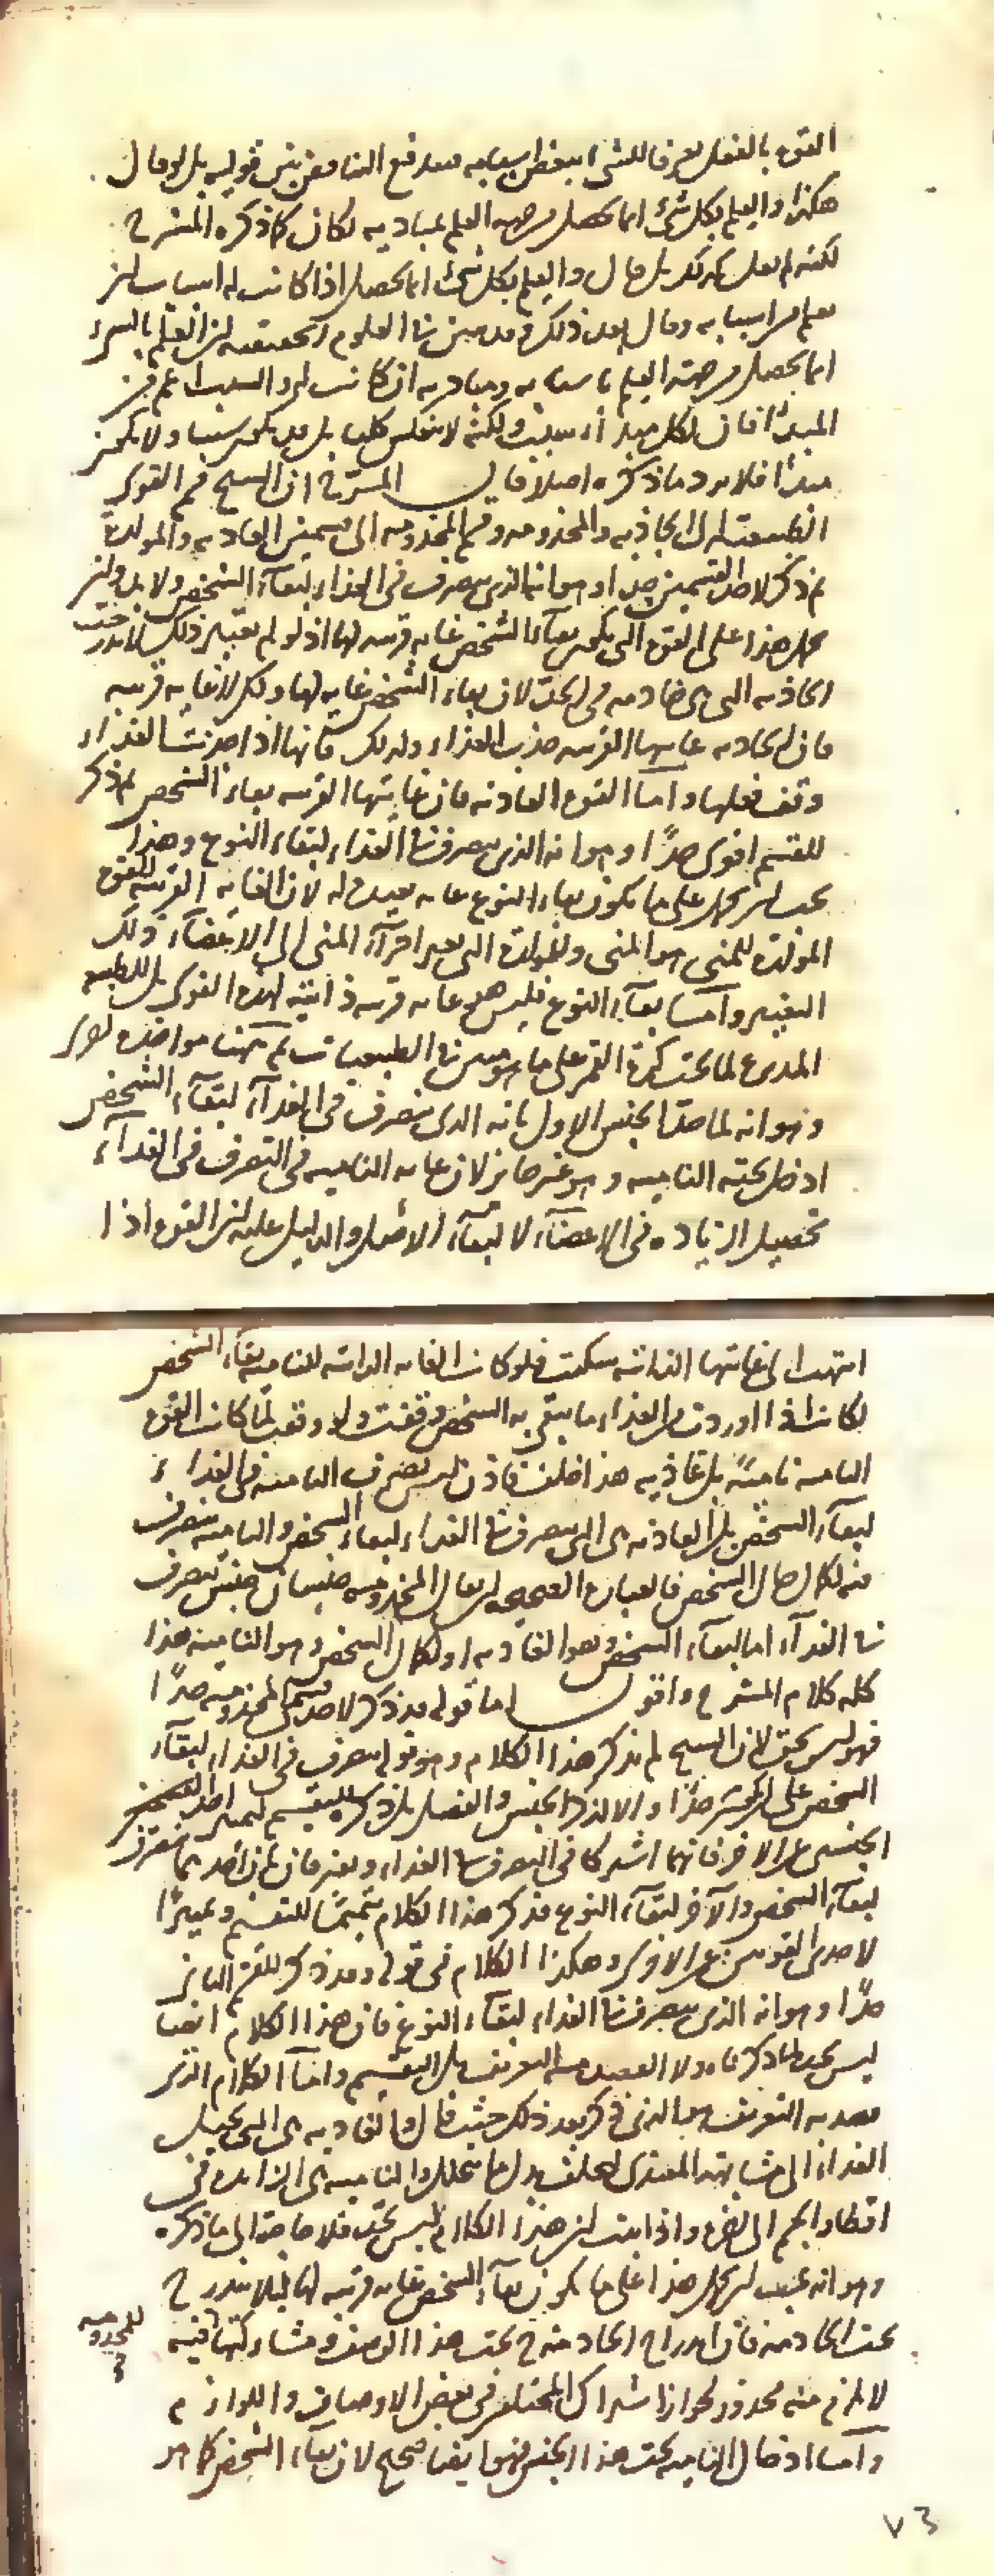 القوة بالفعل معرفا للشئ ببعض اسبابه فقد رفع التناقض بين قوليه بل لو قال
هكذا والعلم بكل شئ انما يحصل من جهة العلم بمباديه لكان كما ذكره المسيحى
لكنه لم يقل كذلك بل قال والعلم بكل شئ انما يحصل اذا كانت له اسباب ان
يعلم من اسبابه وقال بعد ذلك وقد تبين فى العلوم الحقيقية ان العلم بالشئ
انما يحصل من جهة العلم باسبابه ومباديه ان كانت له والسبب اعم من
المبدأ فان لكل مبدأ سبب ولكنه لا ينعكس كليا بل قد يكون سببا ولا يكون
مبدأ فلا يرد ما ذكره اصلا قال المسيحى ان الشيخ قسم القوى
الطبيعية الى الخادمة والمخدومة وقسم المخدومة الى قسمين الغاذية والمولدة
ثم ذكر لاحد القسمين حدا وهو انه الذى يتصرف فى الغذاء لبقاء الشخص ولا بد وان
يحمل هذا على القوة التى يكون بقاء الشخص غاية قريبة لها اذ لو لم يعتبر ذلك لاندرجت
الجاذبة التى هى خادمة فى الحد لان بقاء الشخص غاية لها ولكن لا غاية قريبة
فان الجاذبة غايتها القريبة جذب الغذاء ولذلك فانها اذا جذبت الغذاء
وقف فعلها واما القوة الغاذية فان غايتها القريبة بقاء الشخص ثم ذكر
للقسم الاخر حدا وهو انه الذى يتصرف فى الغذاء لبقاء النوع وهذا
يجب ان يحمل على ما يكون بقاء النوع غاية بعيدة له لان الغاية القريبة للقوة
المولدة للمنى هو المنى وللمولدة التى تغير اجزاء المنى الى الاعضاء ذلك
التغيير واما بقاء النوع فليس هو غاية قريبة ذاتية لهذه القوى بل للطبيعة
المدبرة لما تحت كرة القمر على ما هو مبين فى الطبيعيات ثم ههنا مؤاخذة اخرى
وهو انه لما حد الجنس الاول بانه الذى يتصرف فى الغذاء لبقاء الشخص
ادخل تحته النامية وهو غير جائز لان غاية النامية فى التصرف فى الغذاء
تحصيل الزيادة فى الاعضاء لا لبقاء الاصل والدليل عليه ان القوة اذا
انتهت الى غايتها الذاتية سكنت فلو كانت الغاية الذاتية للنامية بقاء الشخص
لكانت اذا اوردت من الغذاء ما يبقى به الشخص وقفت ولو وقفت لما كانت القوة
النامية نامية بل غاذية هذا خلف فاذن ليس تصرف النامية فى الغذاء
لبقاء الشخص بل الغاذية هى التى تتصرف فى الغذاء لبقاء الشخص والنامية تتصرف
فيه لكمال حال الشخص فالعبارة الصحيحة ان يقال المخدومة جنسان جنس يتصرف
فى الغذاء اما لبقاء الشخص وهو الغاذية او لكمال الشخص وهو النامية هذا
كله كلام المسيحى واقول اما قوله قد ذكر لاحد قسمى المخدومة حدا
فهو ليس بحق لان الشيخ لم يذكر هذا الكلام وهو قوله يتصرف فى الغذاء لبقاء
الشخص على ان يكون حدا والا لذكر الجنس والفصل بل ذكره للتقسيم ليميز احد القسمين
الجنسين عن الاخر فانهما اشتركا فى التصرف فى الغذاء
لبقاء الشخص والآخر لبقاء النوع فذكر هذا الكلام تتميما للتقسيم وتمييزا
لاحدى القوتين عن الاخرى وهكذا الكلام فى قوله وقد ذكر للقسم الثانى
حدا وهو انه الذى يتصرف فى الغذاء لبقاء النوع فان هذا الكلام ايضا
ليس بحد لما ذكرناه ولا القصد منه التعريف بل التقسيم واما الكلام الذى
قصد به التعريف فهو الذى ذكر بعد ذلك حيث قال والغاذية هى التى تحيل
الغذاء الى مشابهة المغتذى ليخلف بدل ما يتحلل والنامية هى الزائدة فى
اقطار الجسم الى اخره واذا ثبت ان هذا الكلام ليس بحد فلا حاجة الى ما ذكره
وهو انه يجب ان يحمل هذا على ما يكون بقاء الشخص غاية قريبة لها لئلا يندرج
تحت الخادمة فان اندراج الخادمة تحت هذا الوصف ومشاركتها فيه
للمخدومة
لا يلزم منه محذور لجواز اشتراك المختلفين فى بعض الاوصاف واللوازم
واما ادخال النامية تحت هذا الجنس فهو ايضا صحيح لان بقاء الشخص كما هو
٧٣